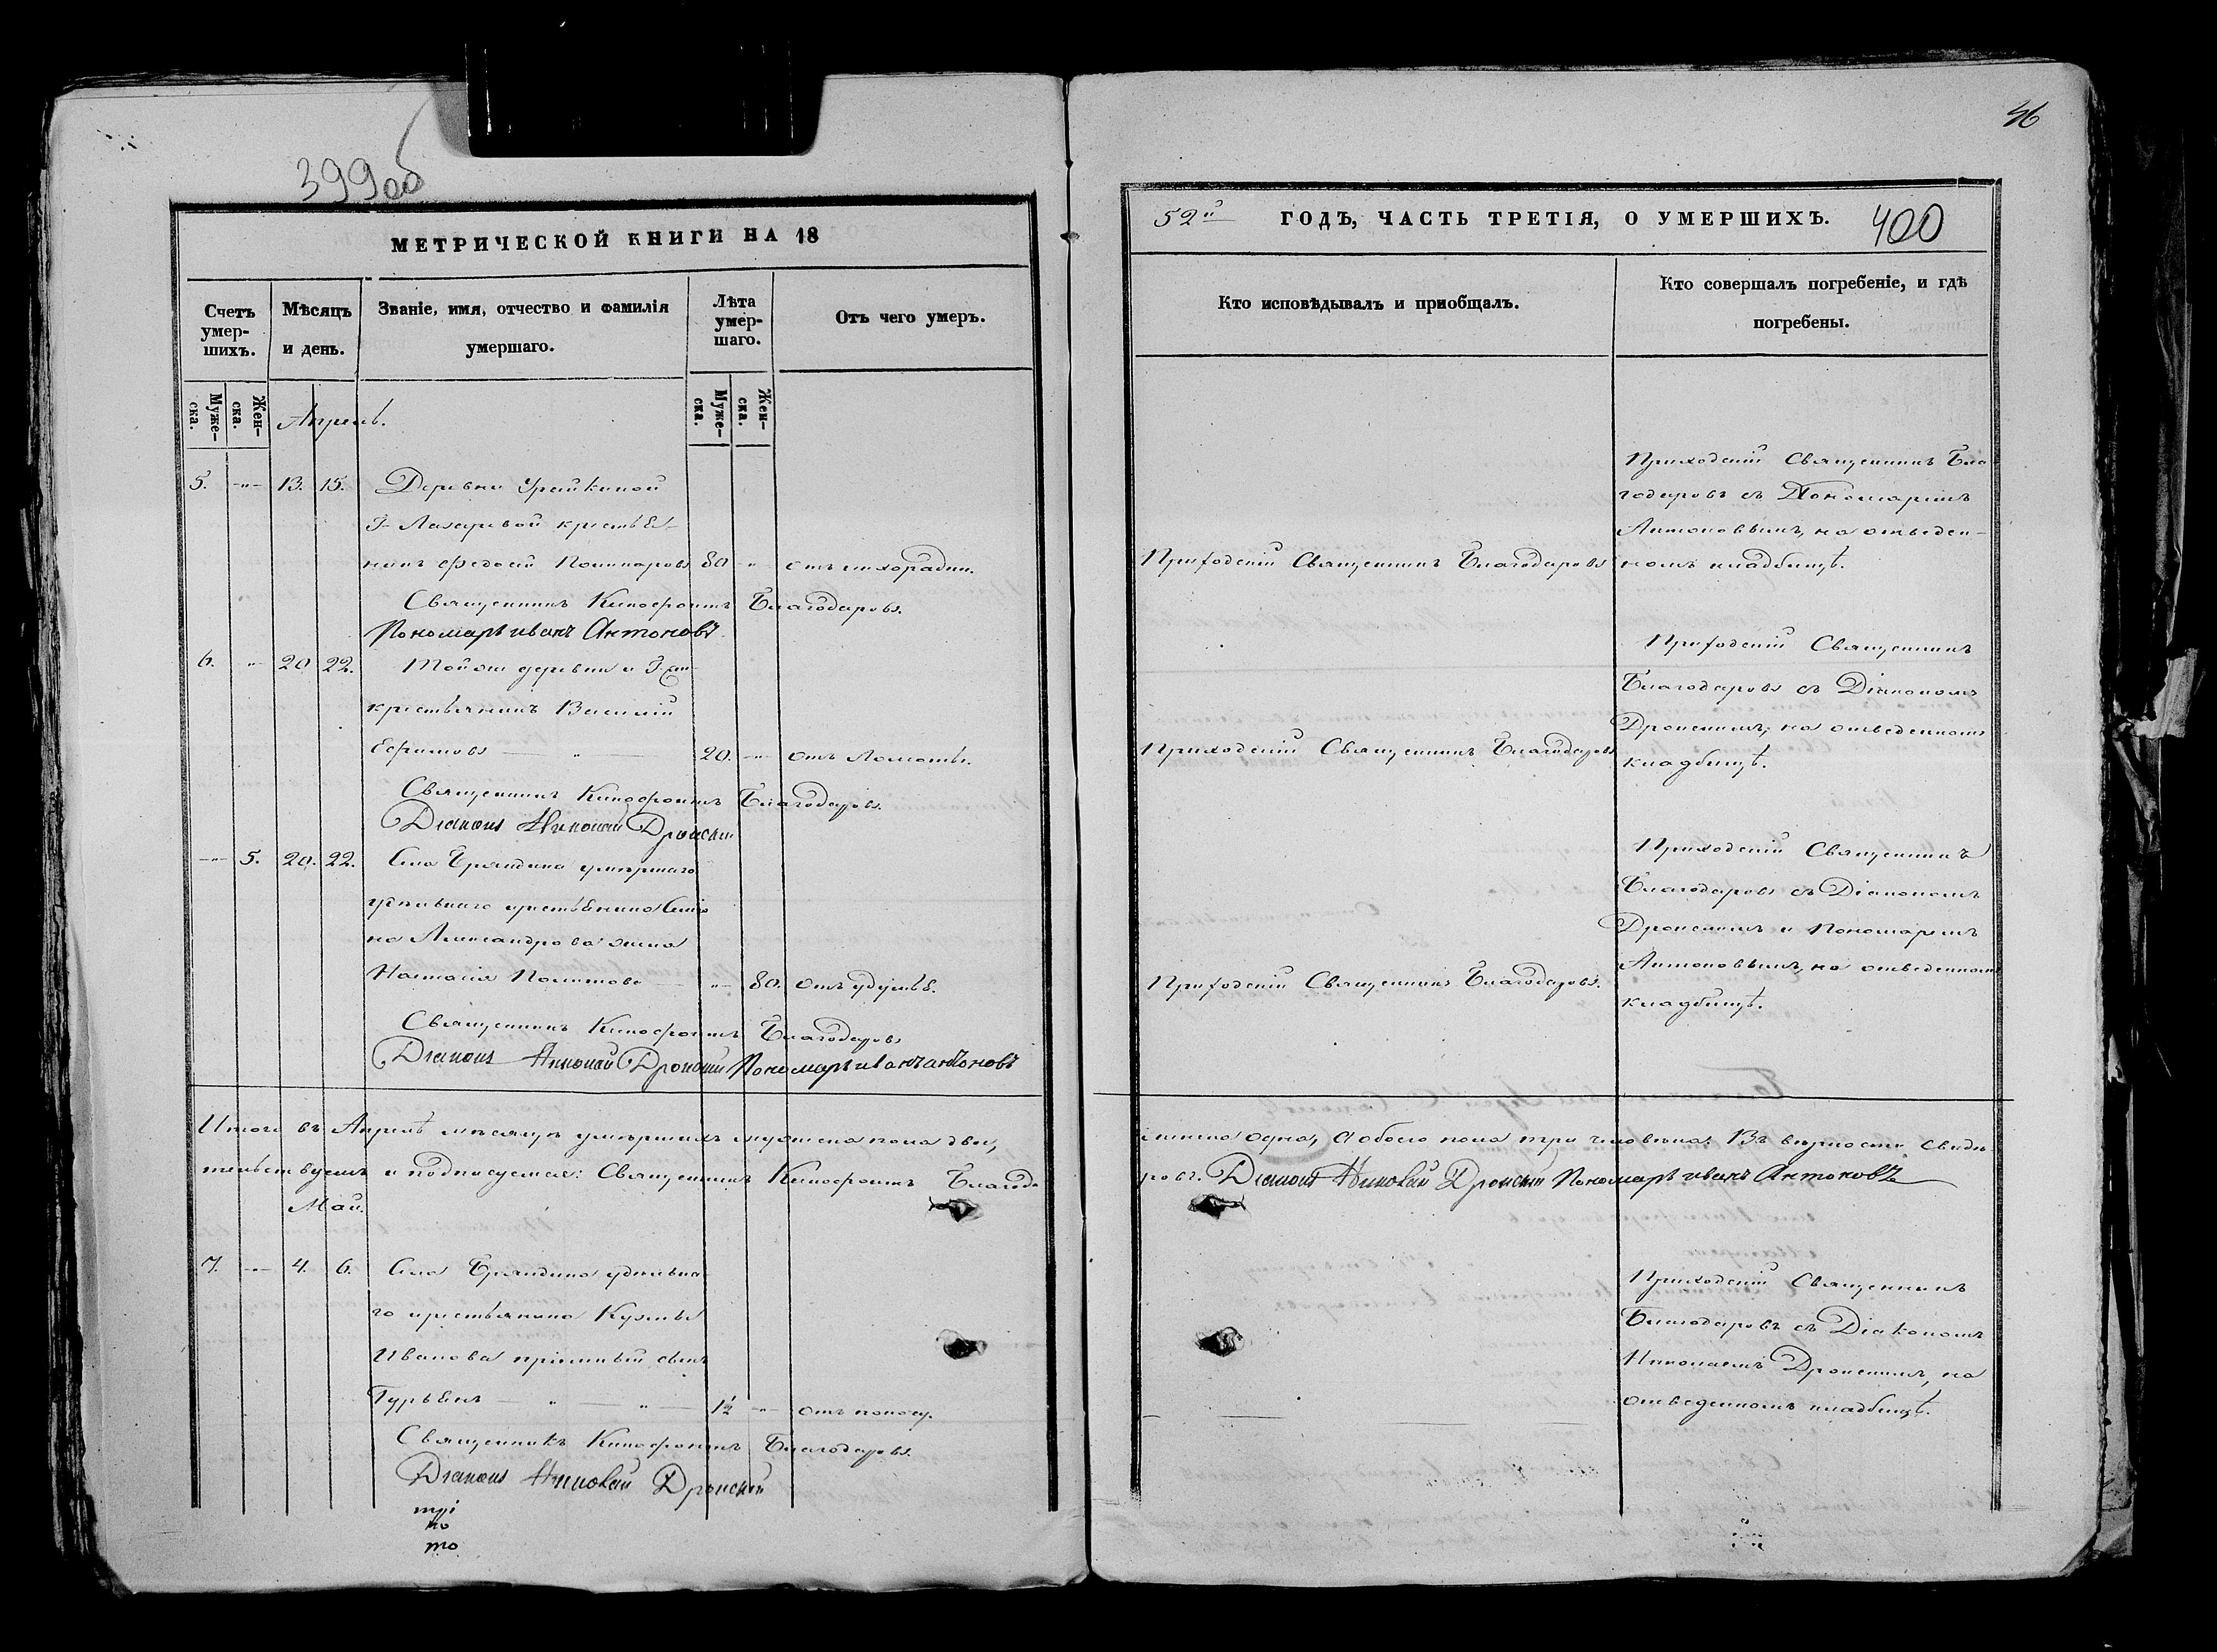 399об
МЕТРИЧЕСКОЙ КНИГИ НА 18
Счетъ умер-шихъ.
Мѣсяцъ и день.
Званіе, имя, отчество и фамилія умершаго.
Лѣта умер-шаго.
Отъ чего умеръ.
Муже-ска.
Жен-ска.
Муже-ска.
Жен-ска.
Апрель.
5. -"- 13. 15. Деревни Урайкиной
Г. Лазаревой крестья-
нинъ Федосій 80 " отъ лихорадки.
Священникъ Ксенофонтъ Благодаровъ.
Пономарь иванъ Антоновъ
6. " 20 22. Той же деревни и Г-жи
крестьянинъ Василій
Ефимовъ — " — 20. -"- отъ ломоты.
Священникъ Ксенофонтъ Благодаровъ.
Діаконъ Николай Дронскій
-"- 5. 20. 22. Села Бряндина умершаго
удѣльнаго крестьянина
на Александрова жена
Наталія — " — 80. отъ удушья.
Священникъ Ксенофонтъ Благодаровъ
Діаконъ Николай Дронскій Пономарь иванъ антоновъ
Итого въ Апрелѣ мѣсяцѣ умершихъ мужеска пола два,
тельствуемъ и подписуемся: Священникъ Ксенофонтъ Благода
Май.
7. -"- 4. 6. Села Бряндина удѣльна-
го крестьянина Кузьмы
Иванова сынъ
Гурьянъ — " — " — 1½ -"- отъ поносу.
Священникъ Ксенофонтъ Благодаровъ.
Діаконъ Николай Дронскій
трі
но
то
46
52й ГОДЪ, ЧАСТЬ ТРЕТІЯ, О УМЕРШИХЪ. 400
Кто исповѣдывалъ и пріобщалъ.
Кто совершалъ погребеніе, и гдѣ погребены.
Приходскій Священникъ Бла
годаровъ съ Пономаремъ
Антоновымъ, на отведен-
Приходскій Священникъ Благодаровъ номъ кладбищѣ.
Приходскій Священникъ
Благодаровъ съ Діакономъ
Дронскимъ, на отведенномъ
Приходскій Священникъ Благодаровъ кладбищѣ.
Приходскій Священникъ
Благодаровъ съ Діакономъ
Дронскимъ и Пономаремъ
Антоновымъ, на отведенномъ
Приходскій Священникъ Благодаровъ. кладбищѣ.
женска одна, а обоего пола три человѣка. Въ вѣрности свидѣ
ровъ. Діаконъ Николай Дронскій Пономарь иванъ Антоновъ
Приходскій Священникъ
Благодаровъ съ Діакономъ
Николаемъ Дронскимъ, на
отведенномъ кладбищѣ.